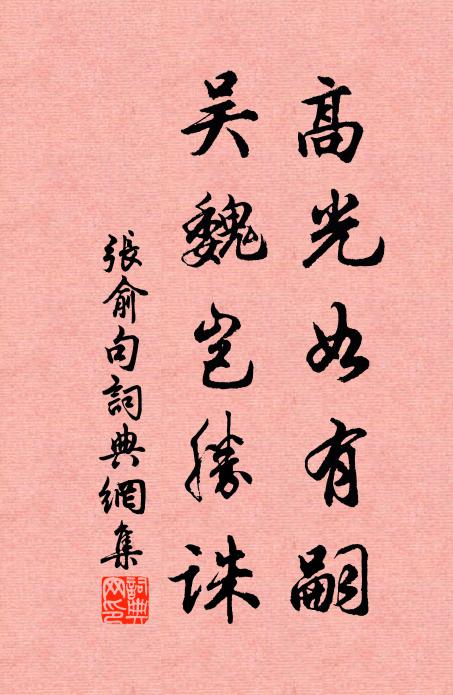 高光如有嗣
吴魏岂勝誅
張俞句詞典網集
詞典网印